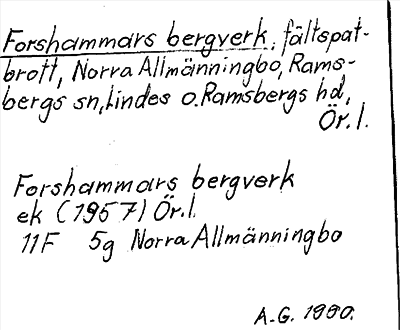 Forshammars bergverk, fältspat-
brott, Norra Allmänningbo, Rams-
bergs sn, Lindes o. Ramsbergs hd,
Ör. l.
Forshammars bergverk
ek (1957) Ör. l.
11F 5g Norra Allmänningbo
A.G. 1990.